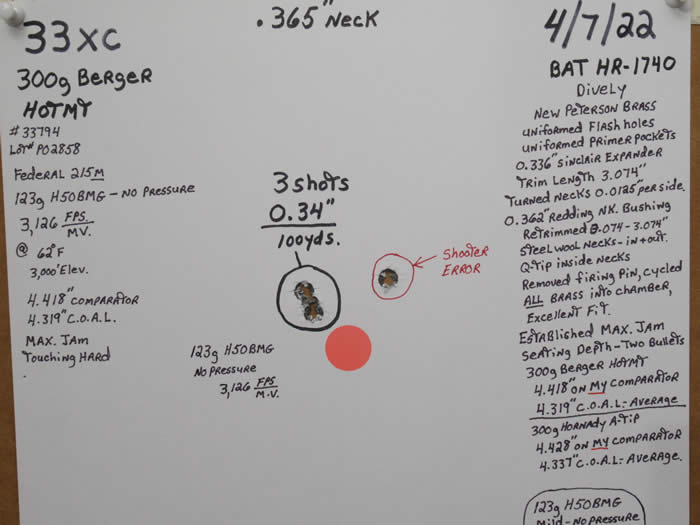 33XC
300g BERGER
HOTMT
# 33794
LOT# P02858
FEDERAL 215M
123g H50BMG – NO PRESSURE
3,126 FPS. M.V.
@ 62°F
3,000' ELEV.
4.418" COMPARATOR
4.319" C.O.A.L.
MAX. JAM
TOUCHING HARD
.365" NECK
3 SHOTS
0.34"
100yds.
SHOOTER
ERROR
123g H50BMG
NO PRESSURE
3,126 FPS M.V.
4/7/22
BAT HR-1740
DIVELY
NEW PETERSON BRASS
UNIFORMED FLASH HOLES
UNIFORMED PRIMER POCKETS
0.336" SINCLAIR EXPANDER
TRIM LENGTH 3.074"
TURNED NECKS 0.0125" PER SIDE.
0.362" REDDING NK. BUSHING
RETRIMMED 3.074 – 3.074"
STEEL WOOL NECKS – IN + OUT.
Q TIP INSIDE NECKS
REMOVED FIRING PIN, CYCLED
ALL BRASS INTO CHAMBER,
EXCELLENT FIT.
ESTABLISHED MAX. JAM
SEATING DEPTH – TWO BULLETS
300g BERGER HOTMT
4.418" ON MY COMPARATOR
4.319" C.O.A.L. – AVERAGE
300g HORNADY A-TIP
4.428" ON MY COMPARATOR
4.337" C.O.A.L. – AVERAGE.
123g H50BMG
MILD – NO PRESSURE